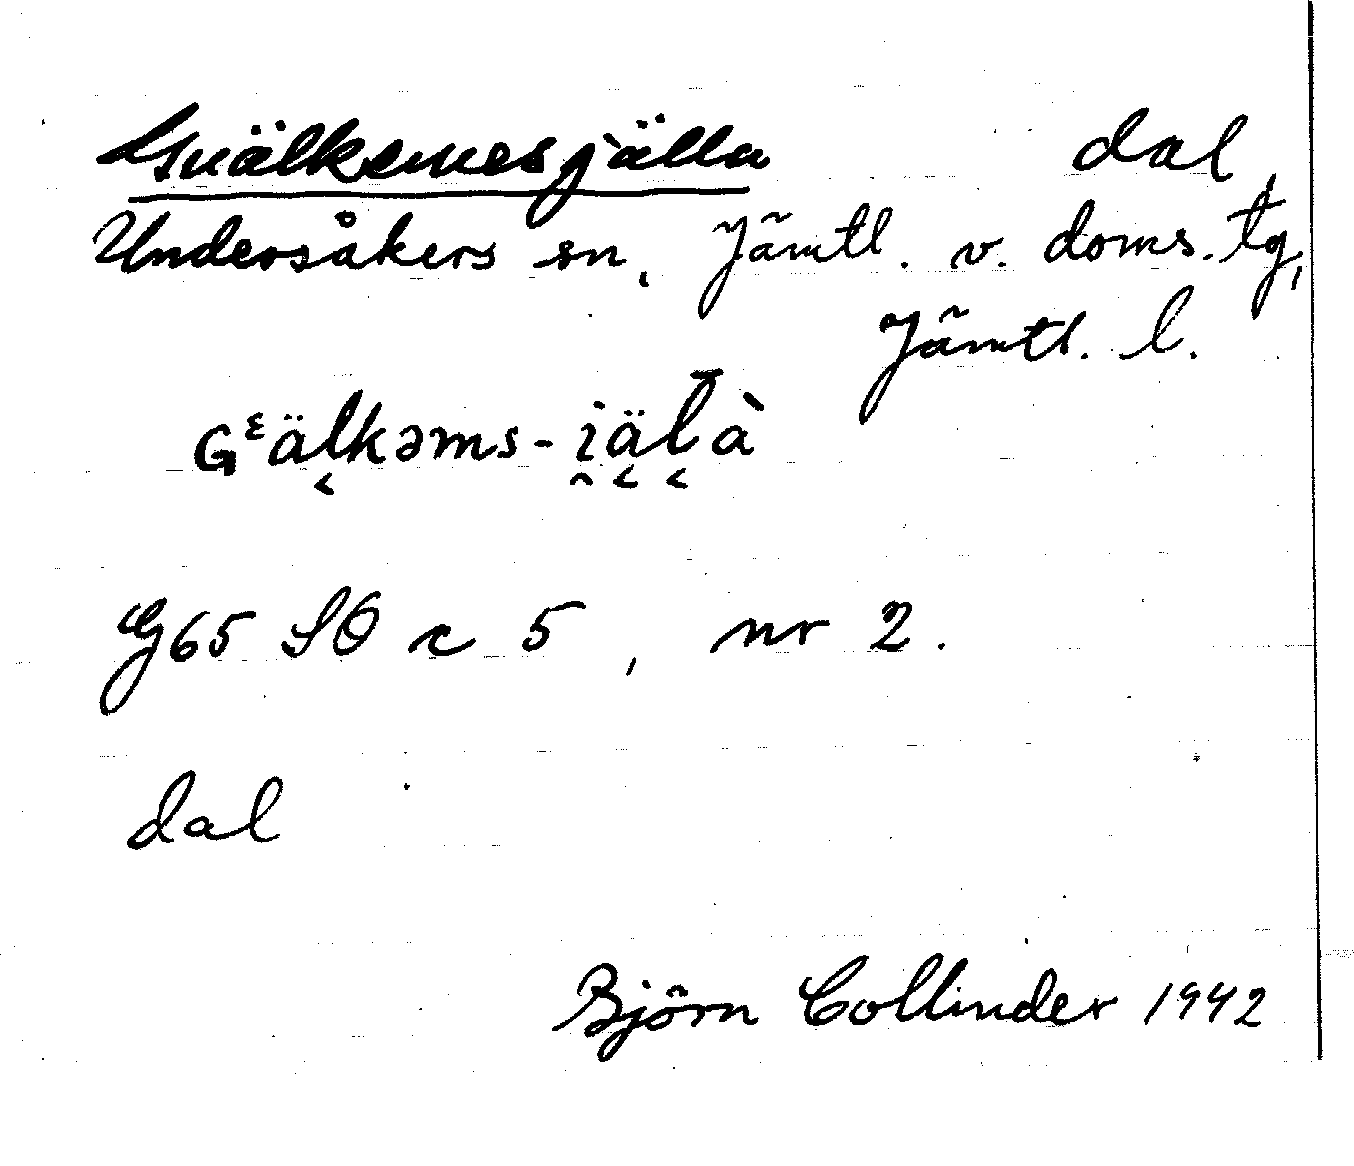 Guälkemesjälla dal,
Undersåkers sn, Jämtl. v. doms. tg,
Jämtl. l.
Gᵋälkəms-i̯äl̄à
G65 SO c 5, nr 2.
dal
Björn Collinder 1942